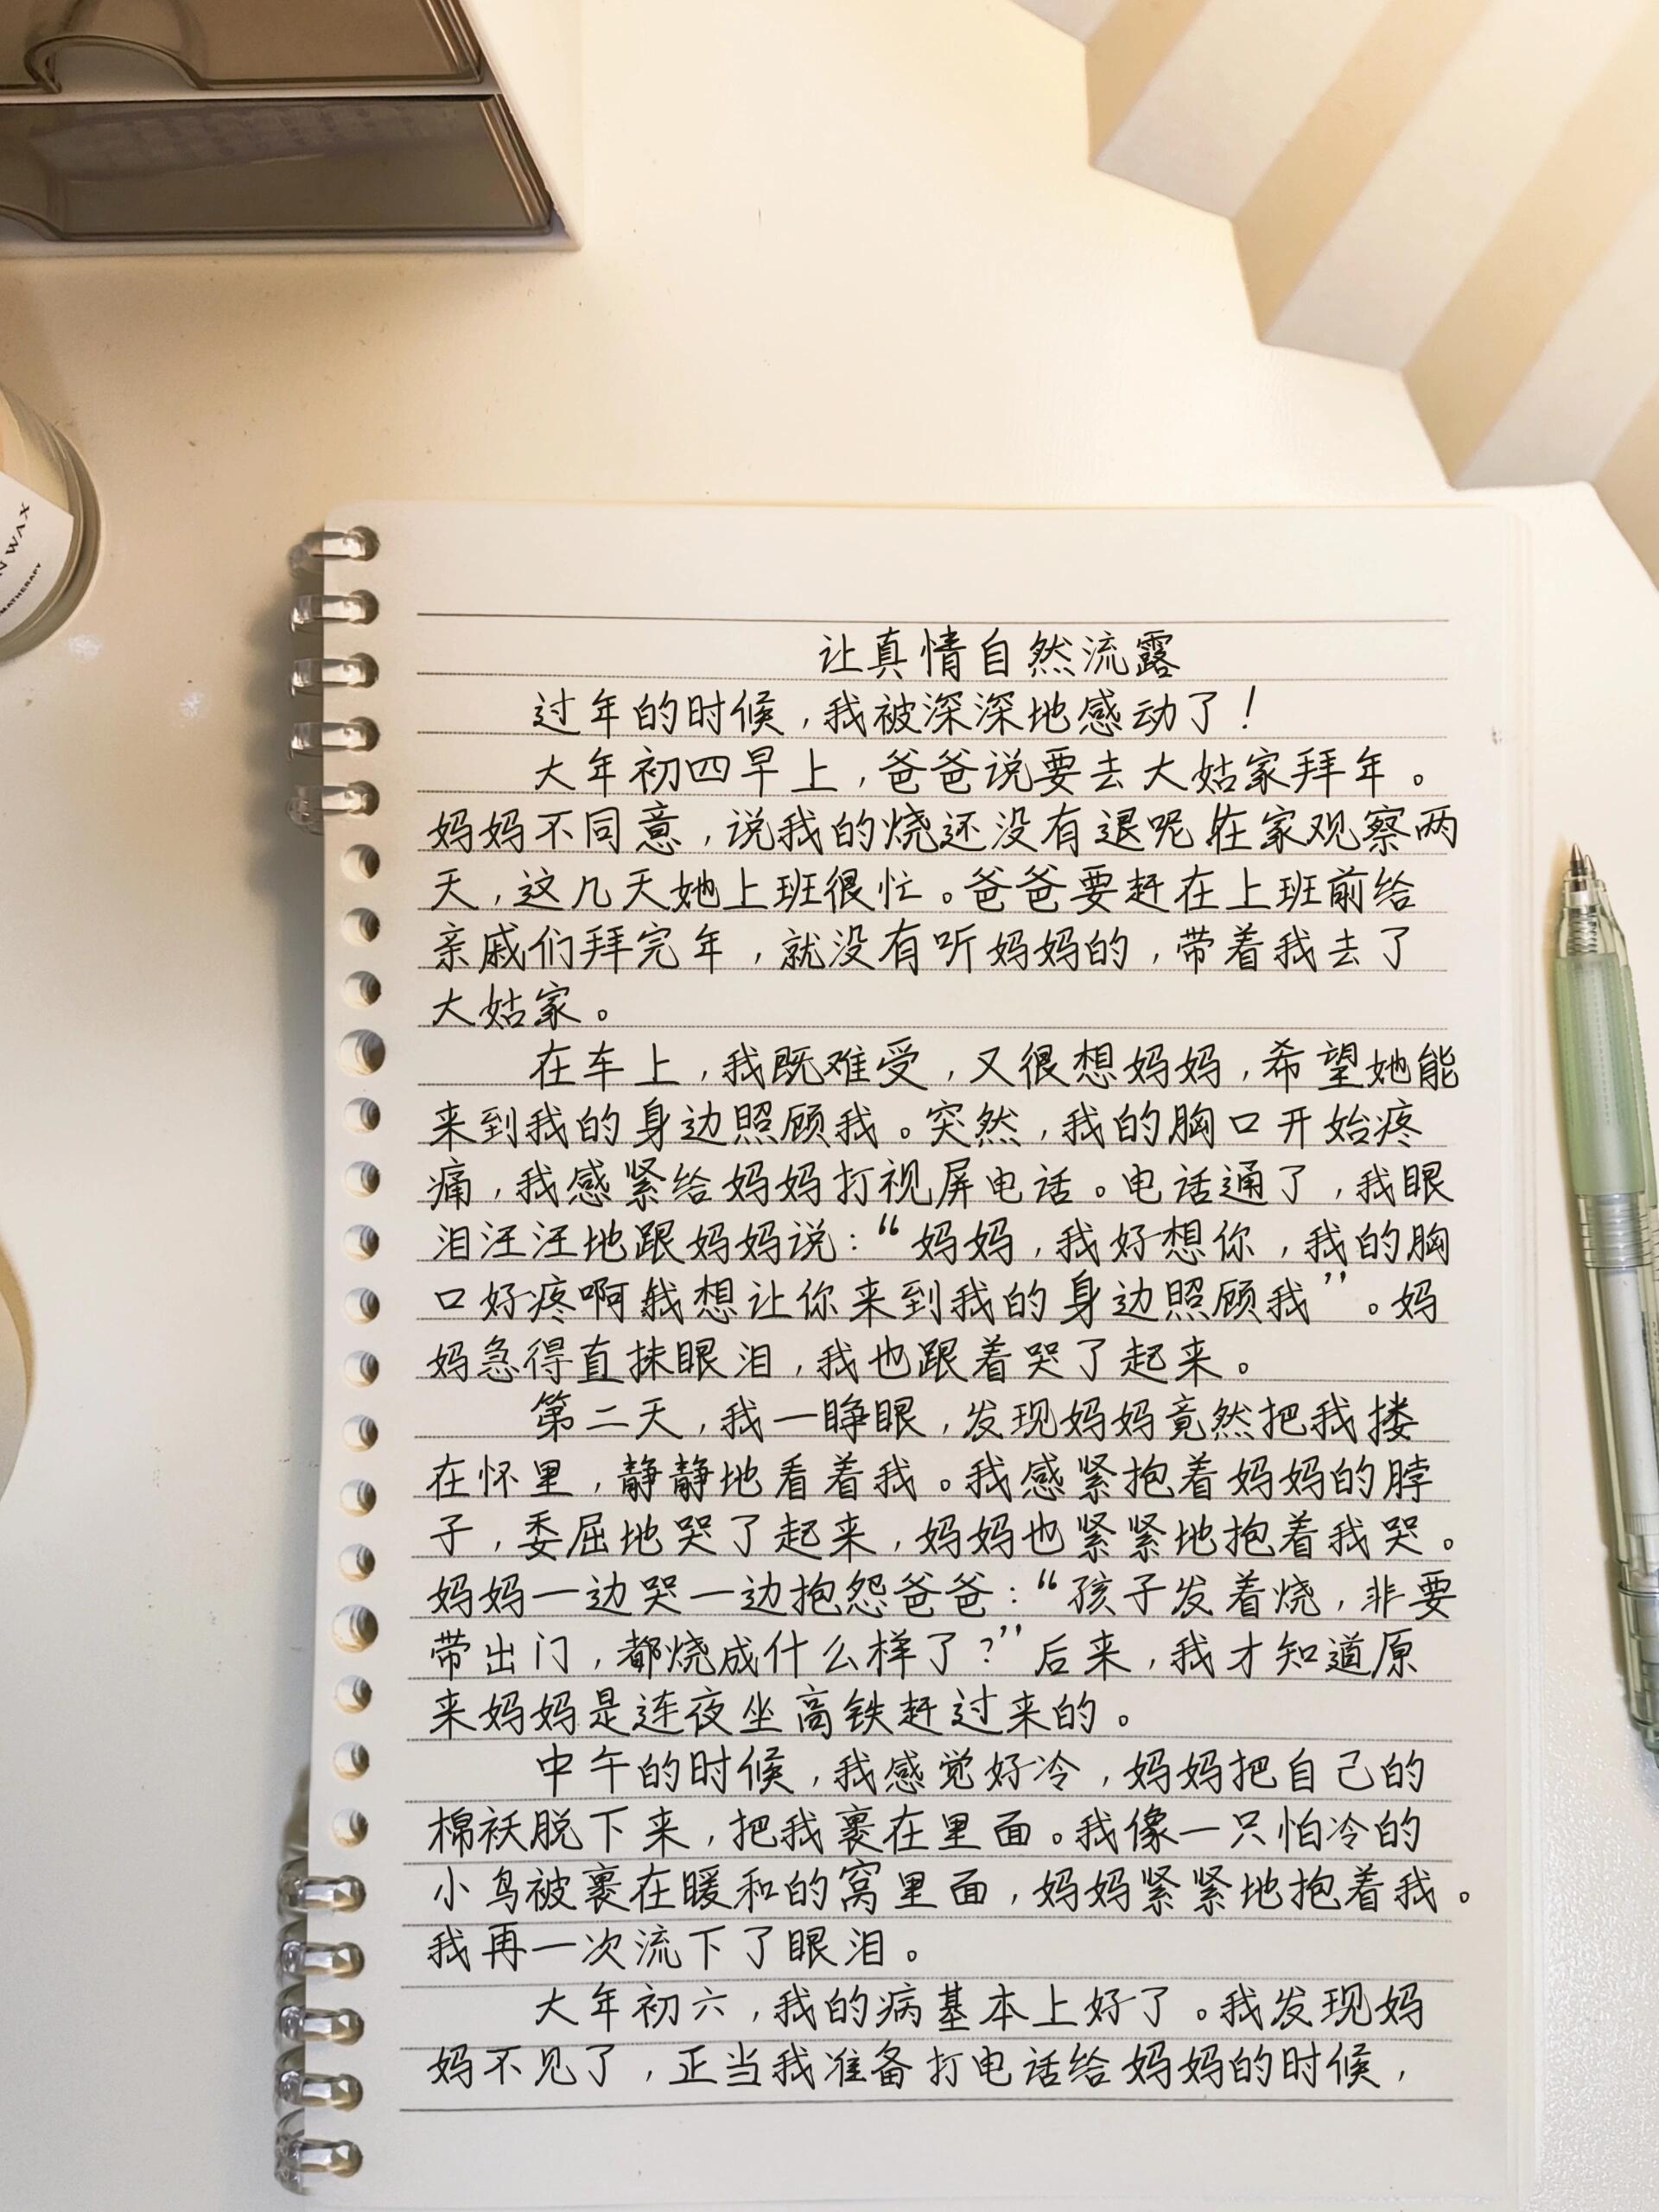 N WAX
MATHERAPY
让真情自然流露
过年的时候，我被深深地感动了！
大年初四早上，爸爸说要去大姑家拜年。
妈妈不同意，说我的烧还没有退呢在家观察两
天，这几天她上班很忙。爸爸要赶在上班前给
亲戚们拜完年，就没有听妈妈的，带着我去了
大姑家。
在车上，我既难受，又很想妈妈，希望她能
来到我的身边照顾我。突然，我的胸口开始疼
痛，我感紧给妈妈打视屏电话。电话通了，我眼
泪汪汪地跟妈妈说：“妈妈，我好想你，我的胸
口好疼啊我想让你来到我的身边照顾我”。妈
妈急得直抹眼泪，我也跟着哭了起来。
第二天，我一睁眼，发现妈妈竟然把我搂
在怀里，静静地看着我。我感紧抱着妈妈的脖
子，委屈地哭了起来，妈妈也紧紧地抱着我哭。
妈妈一边哭一边抱怨爸爸：“孩子发着烧，非要
带出门，都烧成什么样了？”后来，我才知道原
来妈妈是连夜坐高铁赶过来的。
中午的时候，我感觉好冷，妈妈把自己的
棉袄脱下来，把我裹在里面。我像一只怕冷的
小鸟被裹在暖和的窝里面，妈妈紧紧地抱着我。
我再一次流下了眼泪。
大年初六，我的病基本上好了。我发现妈
妈不见了，正当我准备打电话给妈妈的时候，